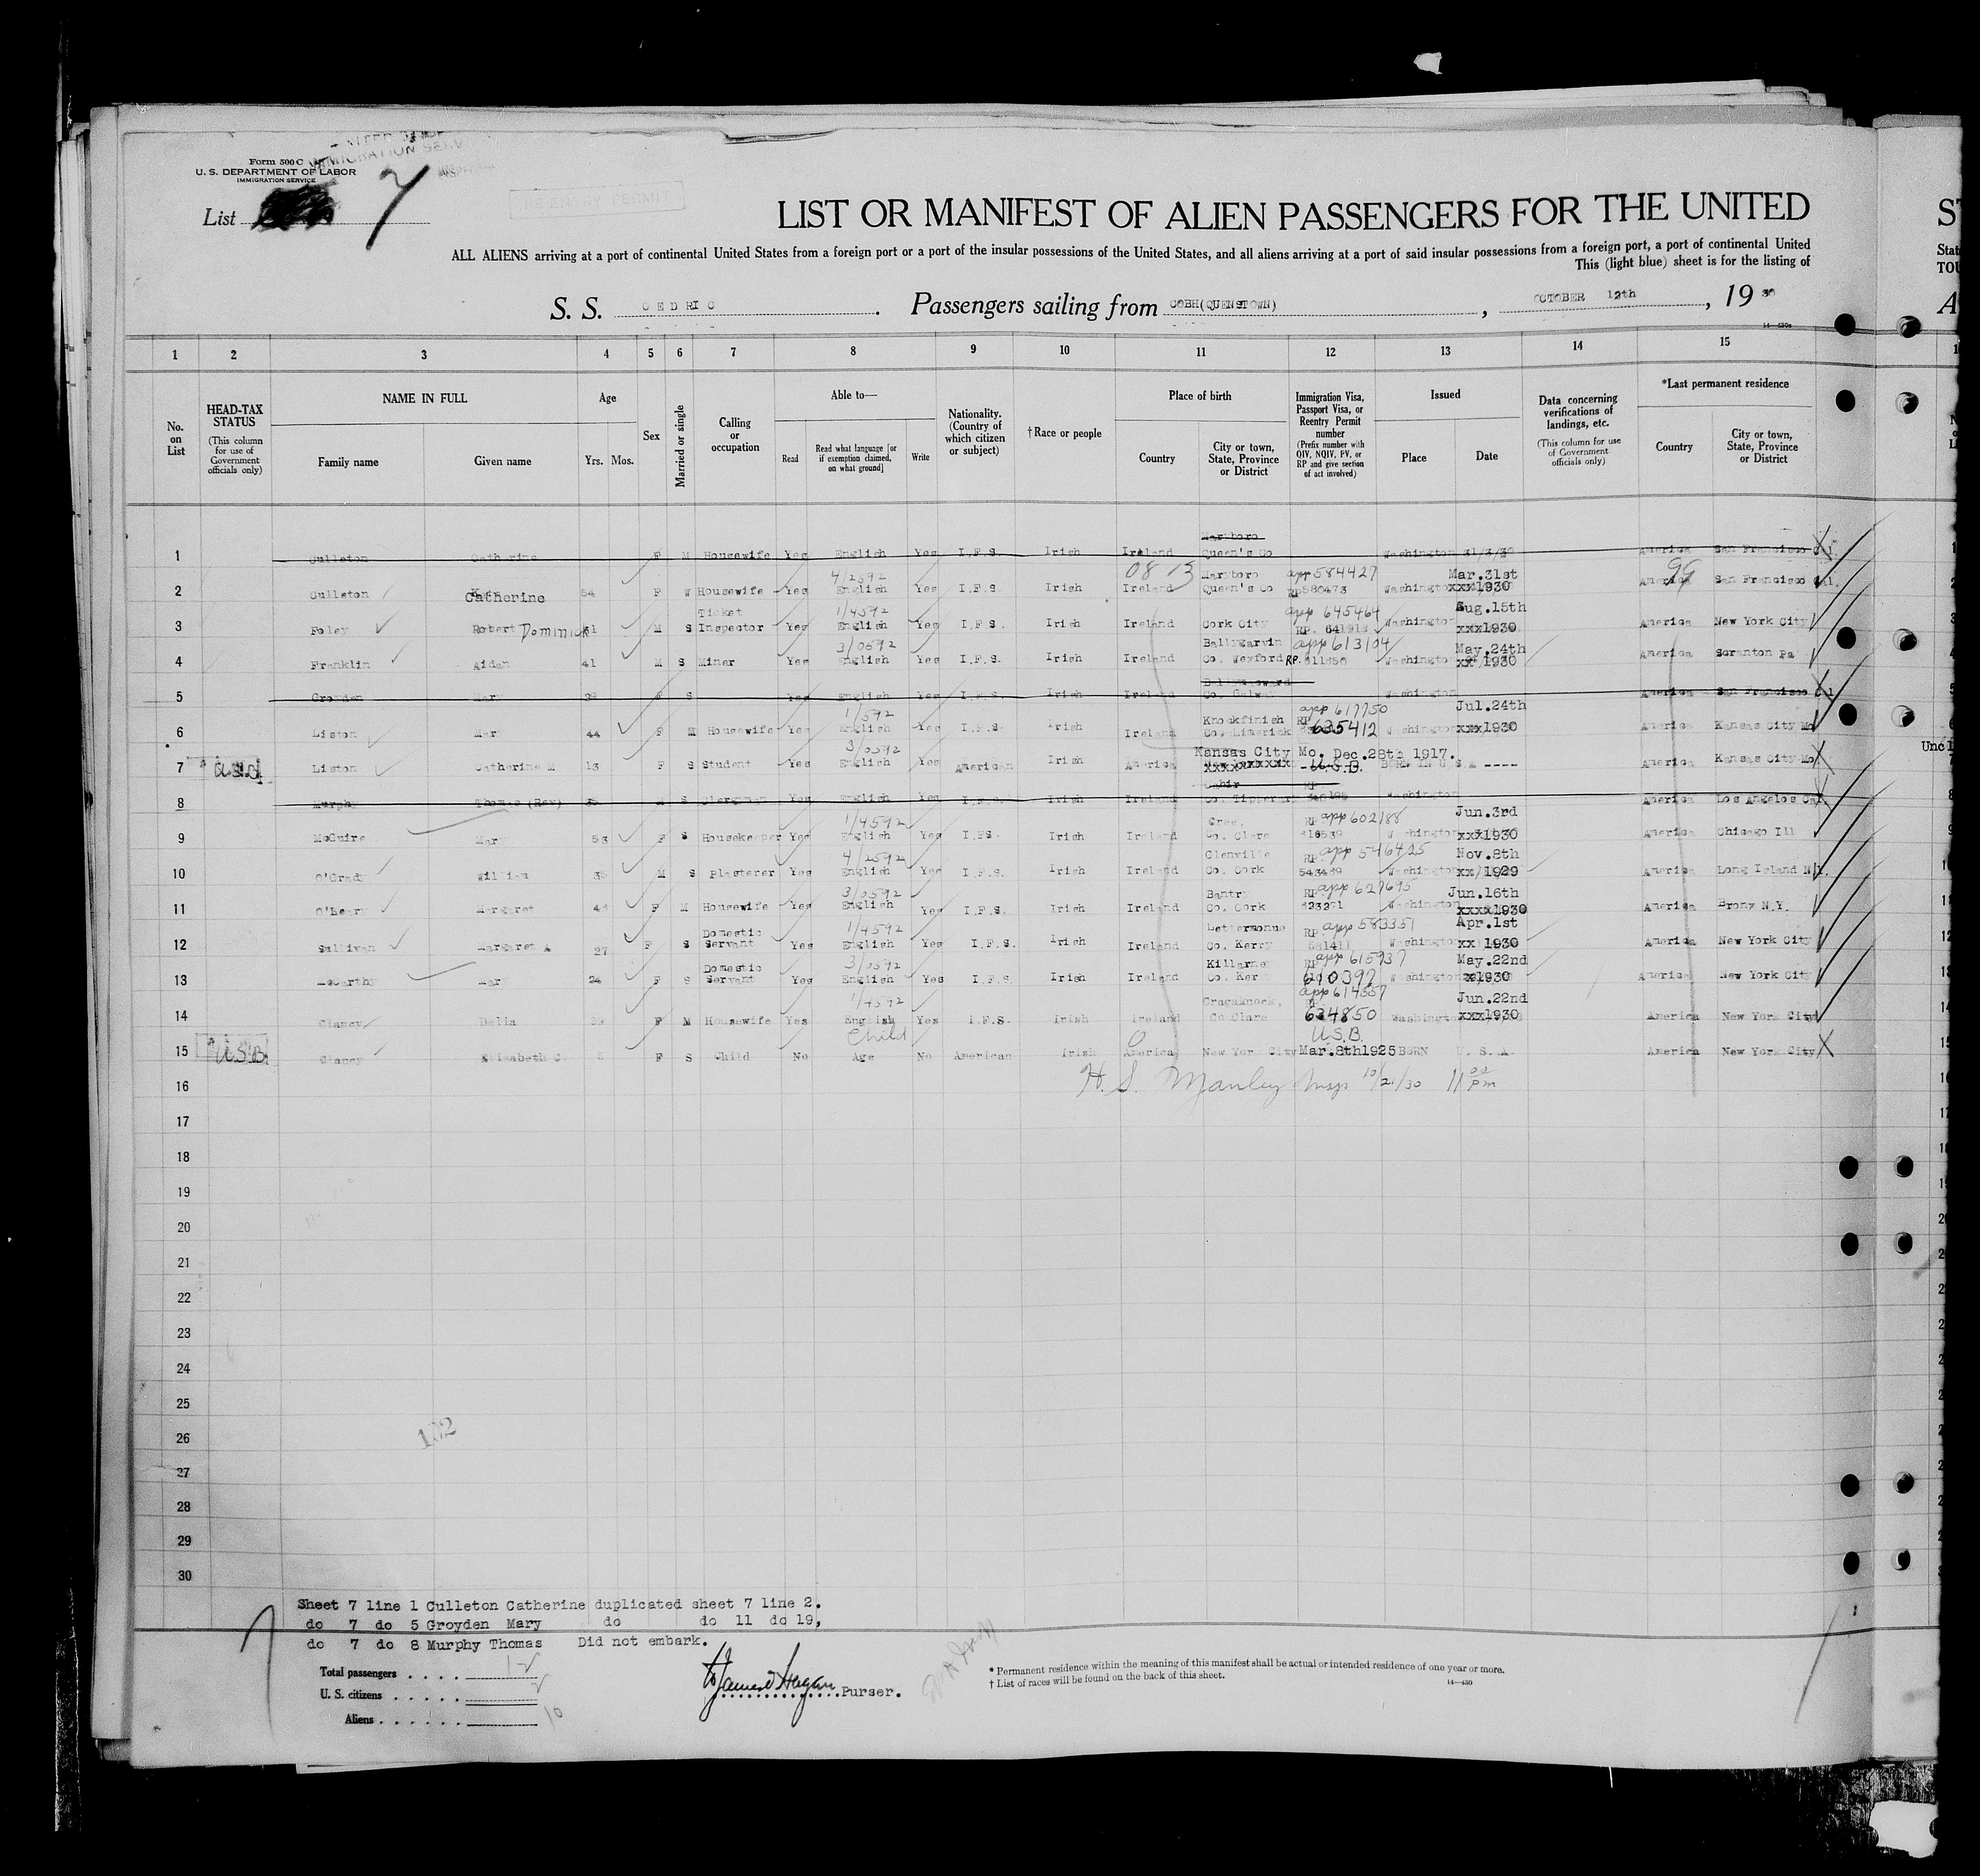 Form 500 C
U. S. DEPARTMENT OF LABOR
IMMIGRATION SERVICE
IMMIGRATION SERV
List 7
REENTRY PERMIT
LIST OR MANIFEST OF ALIEN PASSENGERS FOR THE UNITED
ALL ALIENS arriving at a port of continental United States from a foreign port or a port of the insular possessions of the United States, and all aliens arriving at a port of said insular possessions from a foreign port, a port of continental United
This (light blue) sheet is for the listing of
S. S. CEDRIC Passengers sailing from COBH(QUENSTOWN), OCTOBER 12th, 19 30
1 2 3 4 5 6 7 8 9 10 11 12 13 14 15
No. on List
HEAD-TAX STATUS (This column for use of Government officials only)
NAME IN FULL Family name Given name
Age Yrs. Mos.
Sex
Married or single
Calling or occupation
Able to— Read Read what language [or if exemption claimed, on what ground] Write
Nationality. (Country of which citizen or subject)
†Race or people
Place of birth Country City or town, State, Province or District
Immigration Visa, Passport Visa, or Reentry Permit number (Prefix number with QIV, NQIV, PV, or RP and give section of act involved)
Issued Place Date
Data concerning verifications of landings, etc. (This column for use of Government officials only)
*Last permanent residence Country City or town, State, Province or District
1 Culleton Catherine F M Housewife Yes English Yes I.F.S. Irish Ireland Marlboro Queen's Co Washington 31/3/30 America San Francisco Cal.
2 Culleton Catherine 54 F W Housewife Yes 4/2592 English Yes I.F.S. Irish 0813 Ireland Marlboro Queen's Co app 584427 RP580473 Washington Mar.31st xxx1930 99 America San Francisco Cal.
3 Foley Robert Dominick M S Ticket Inspector Yes 1/4592 English Yes I.F.S. Irish Ireland Cork City app 645464 RP. Washington Aug.15th xxx1930 America New York City
4 Franklin Aidan 41 M S Miner Yes 3/0592 English Yes I.F.S. Irish Ireland Ballygarvin Co. Wexford app 613104 RP. Washington May.24th xx 1930 America Scranton Pa
5 Croyden Mary F S Yes English Yes I.F.S. Irish Ireland Co. Galway Washington America San Francisco Cal
6 Liston Mary 44 F M Housewife Yes 1/592 English Yes I.F.S. Irish Ireland Knockfinish Co. Limerick app 617750 RP 635412 Washington Jul.24th xxx1930 America Kansas City Mo
7 U.S.B. Liston Catherine M 13 F S Student Yes 3/0592 English Yes American Irish America Kansas City Mo. Dec.28th 1917. U.S.B. BORN IN U.S.A ---- America Kansas City Mo.
8 Murphy Thomas (Rev) M S Clergyman Yes English Yes I.F.S. Irish Ireland Cahir Co. Tipperary RP Washington America Los Angelos Cal.
9 McGuire Mary 53 F S Housekeeper Yes 1/4592 English Yes I.FS. Irish Ireland Cree, Co. Clare RP app 602188 Washington Jun.3rd xxx1930 America Chicago Ill
10 O'Grady William M S Plasterer Yes 4/2592 English Yes I.F.S. Irish Ireland Glenville Co. Cork RP app 546425 543489 Washington Nov.8th xx/1929 America Long Island N.Y.
11 O'Leary Margaret F M Housewife Yes 3/0592 English Yes I.F.S. Irish Ireland Bantry Co. Cork RP app 627695 623271 Washington Jun.16th xxxx1930 America Bronx N.Y.
12 Sullivan Margaret A 27 F S Domestic Servant Yes 1/4592 English Yes I.F.S. Irish Ireland Co. Kerry RP app 583351 581411 Washington Apr.1st xx 1930 America New York City
13 McCarthy Mary 24 F S Domestic Servant Yes 3/0592 English Yes I.F.S. Irish Ireland Killarney Co. Ker RP app 615937 610392 Washington May.22nd x1930 America New York City
14 Clancy Delia F M Housewife Yes 1/4592 English Yes I.F.S. Irish Ireland Cragaknock, Co Clare app 614557 624850 Washington Jun.22nd xxx1930 America New York City
15 U.S.B. Clancy Elizabeth C. 5 F S Child No Child Age No American Irish America New York City U.S.B. Mar.8th1925 BORN U. S. A. America New York City
16 H. S. Manley Insp 10/21/30 11 00 pm
17
18
19
20
21
22
23
24
25
26
27
28
29
30
102
Sheet 7 line 1 Culleton Catherine duplicated sheet 7 line 2.
do 7 do 5 Croyden Mary do do 11 do 19,
do 7 do 8 Murphy Thomas Did not embark.
Total passengers . . . . 12
U. S. citizens . . . . .
Aliens . . . . . . 10
Purser.
* Permanent residence within the meaning of this manifest shall be actual or intended residence of one year or more.
† List of races will be found on the back of this sheet.
14—430